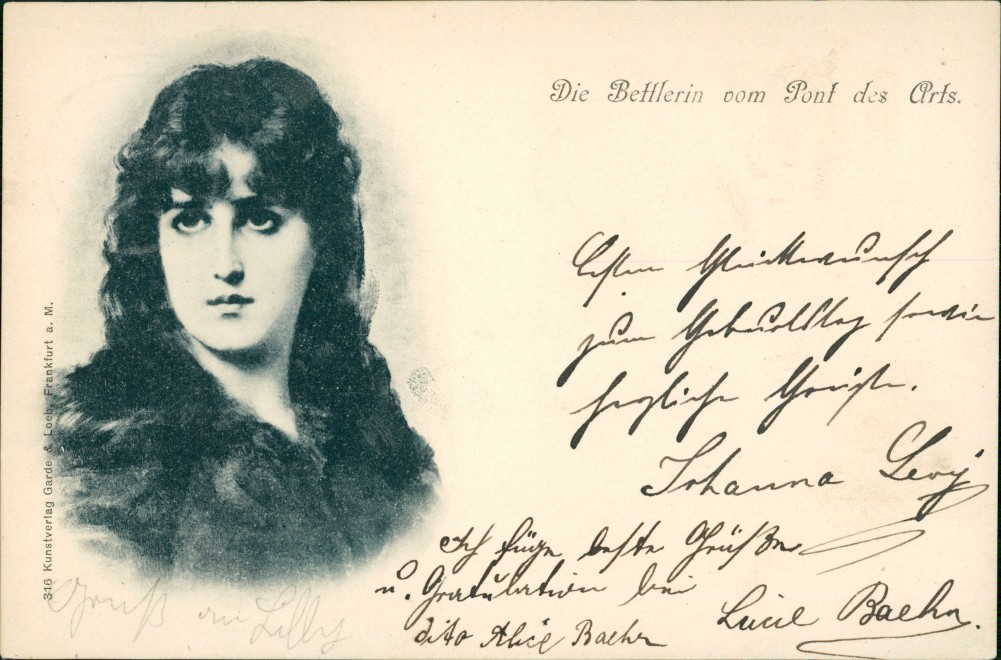 Die Bettlerin vom Pont des Arts.
Besten Glückwunsch
zum Geburtstag sowie
herzliche Grüße.
Johanna Levy
Ich füge beste Grüße
u. Gratulation bei
Lucie Baehr.
dito Alice Baehr
Gruß an Lilly
316 Kunstverlag Garde & Loeb, Frankfurt a. M.